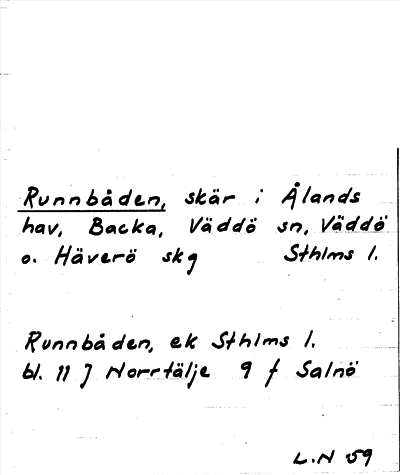 Runnbåden, skär i Ålands
hav, Backa, Väddö sn, Väddö
o. Häverö skg Sthlms l.
Runnbåden, ek Sthlms l.
bl. 11 J Norrtälje 9 f Salnö
L.N 59